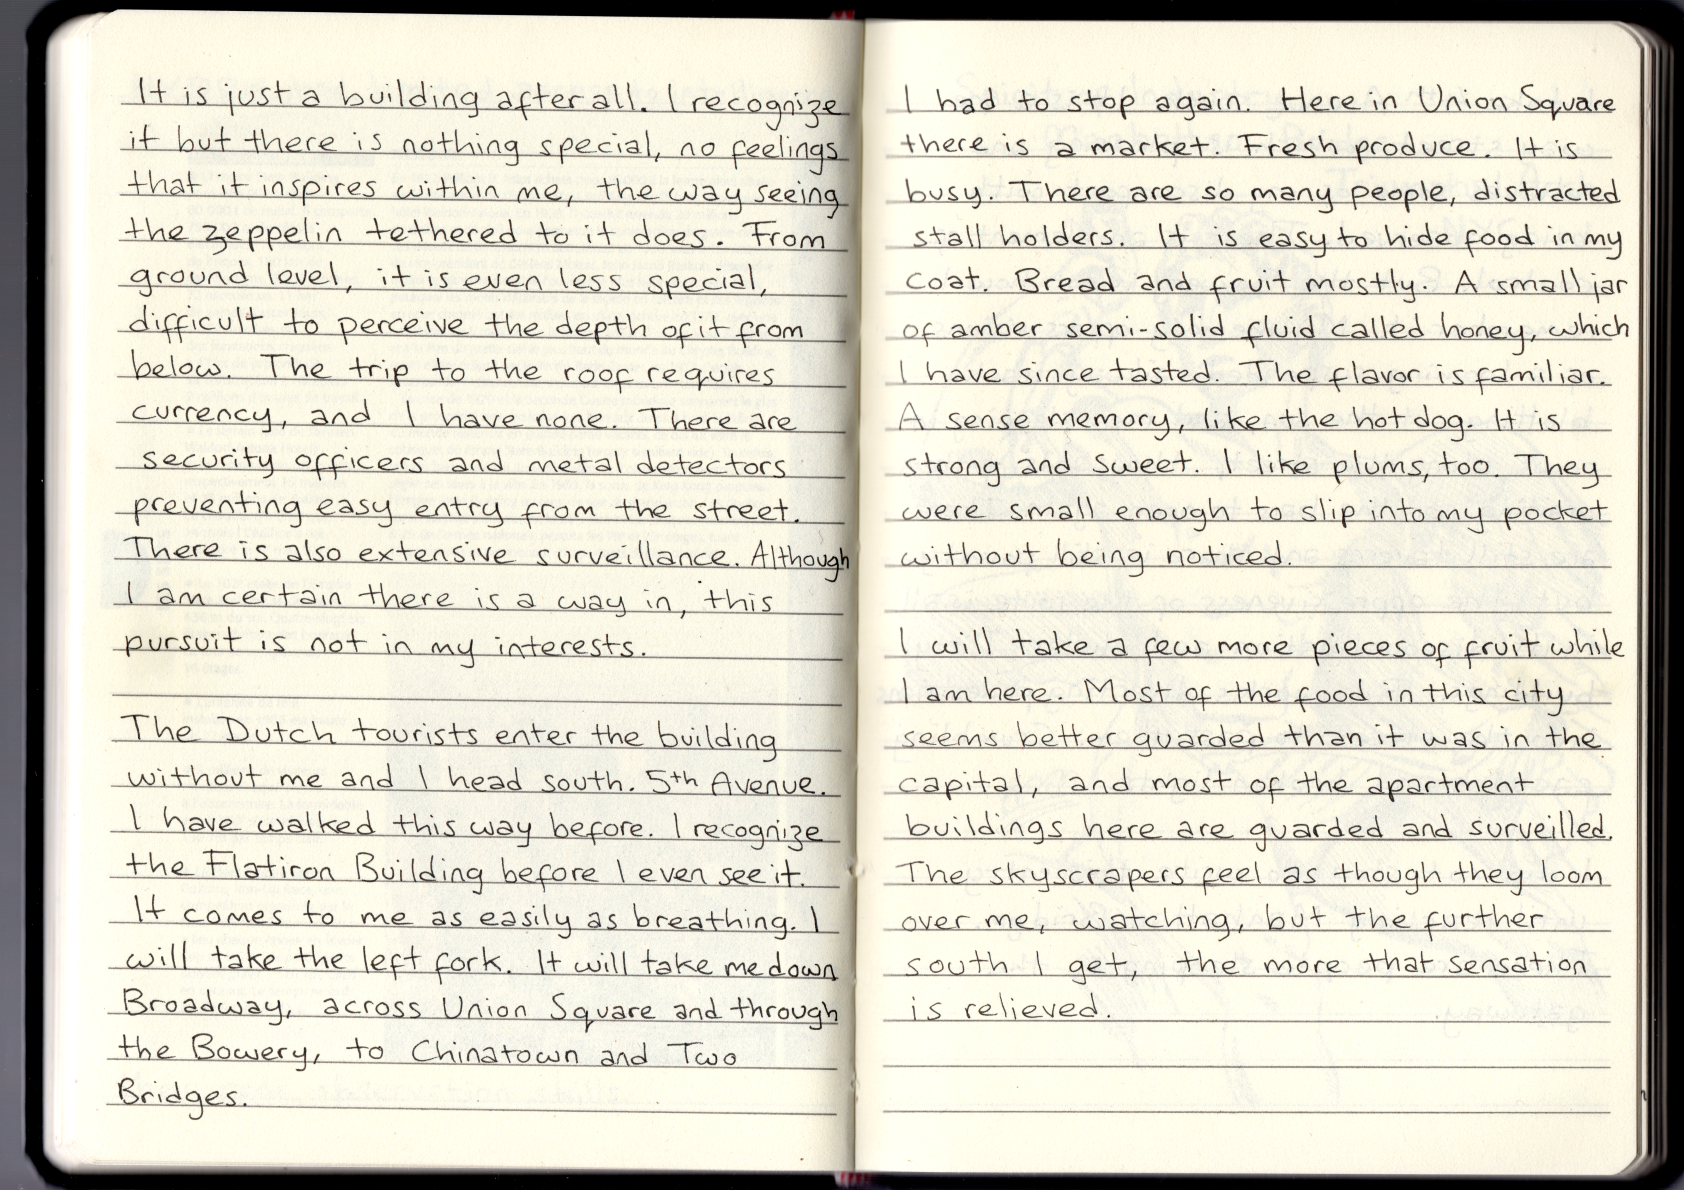 It is just a building after all. I recognize
it but there is nothing special, no feelings
that it inspires within me, the way seeing
the zeppelin tethered to it does. From
ground level, it is even less special,
difficult to perceive the depth of it from
below. The trip to the roof requires
currency, and I have none. There are
security officers and metal detectors
preventing easy entry from the street.
There is also extensive surveillance. Although
I am certain there is a way in, this
pursuit is not in my interests.
The Dutch tourists enter the building
without me and I head south. 5th Avenue.
I have walked this way before. I recognize
the Flatiron Building before I even see it.
It comes to me as easily as breathing. I
will take the left fork. It will take me down
Broadway, across Union Square and through
the Bowery, to Chinatown and Two
Bridges.
I had to stop again. Here in Union Square
there is a market. Fresh produce. It is
busy. There are so many people, distracted
stall holders. It is easy to hide food in my
coat. Bread and fruit mostly. A small jar
of amber semi-solid fluid called honey, which
I have since tasted. The flavor is familiar.
A sense memory, like the hot dog. It is
strong and sweet. I like plums, too. They
were small enough to slip into my pocket
without being noticed.
I will take a few more pieces of fruit while
I am here. Most of the food in this city
seems better guarded than it was in the
capital, and most of the apartment
buildings here are guarded and surveilled.
The skyscrapers feel as though they loom
over me, watching, but the further
south I get, the more that sensation
is relieved.